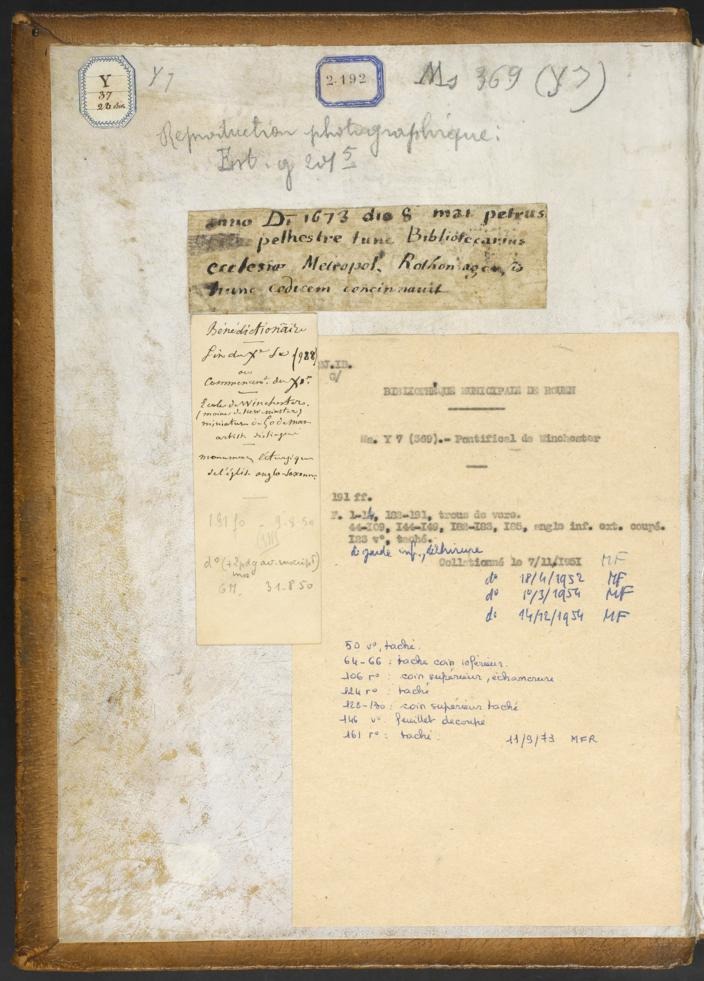 Y
37
Y 7
2.192
Ms 369 (Y 7)
Reproduction photographique:
Est. g 201 5
anno Di 1673 die 8 mai petrus
pelhestre tunc Bibliotecarius
ecclesiæ Metropol. Rothomagen,
hunc codicem concinnavit
Bénédictionaire
fin du Xe (988)
ou
commencemt. du XIe.
Ecole de Winchester.
(moine de New minster)
miniatures de Godeman
artiste distingué
monument liturgique
de l'église anglo-saxonne
191 fo - 9-8-50
do (+2 pdg av. manuscript)
GM. 31-8 50
BIBLIOTHÈQUE MUNICIPALE DE ROUEN
Ms. Y 7 (369).- Pontifical de Winchester
191 ff.
F. 1-14, 182-191, trous de vers.
44-109, 144-149, 182-183, 185, angle inf. ext. coupé.
183 v°, taché.
de garde inf., déchirure
Collationné le 7/11/1951 MF
do 18/4/1952 MF
do 1º/3/1954 MF
do 14/12/1954 MF
50 vo, taché.
64-66 : tache coin inférieur.
106 ro : coin supérieur, échancrure
124 ro : taché
128-130 : coin supérieur taché
146 vo feuillet découpé
161 ro : taché. 11/9/73 MFR